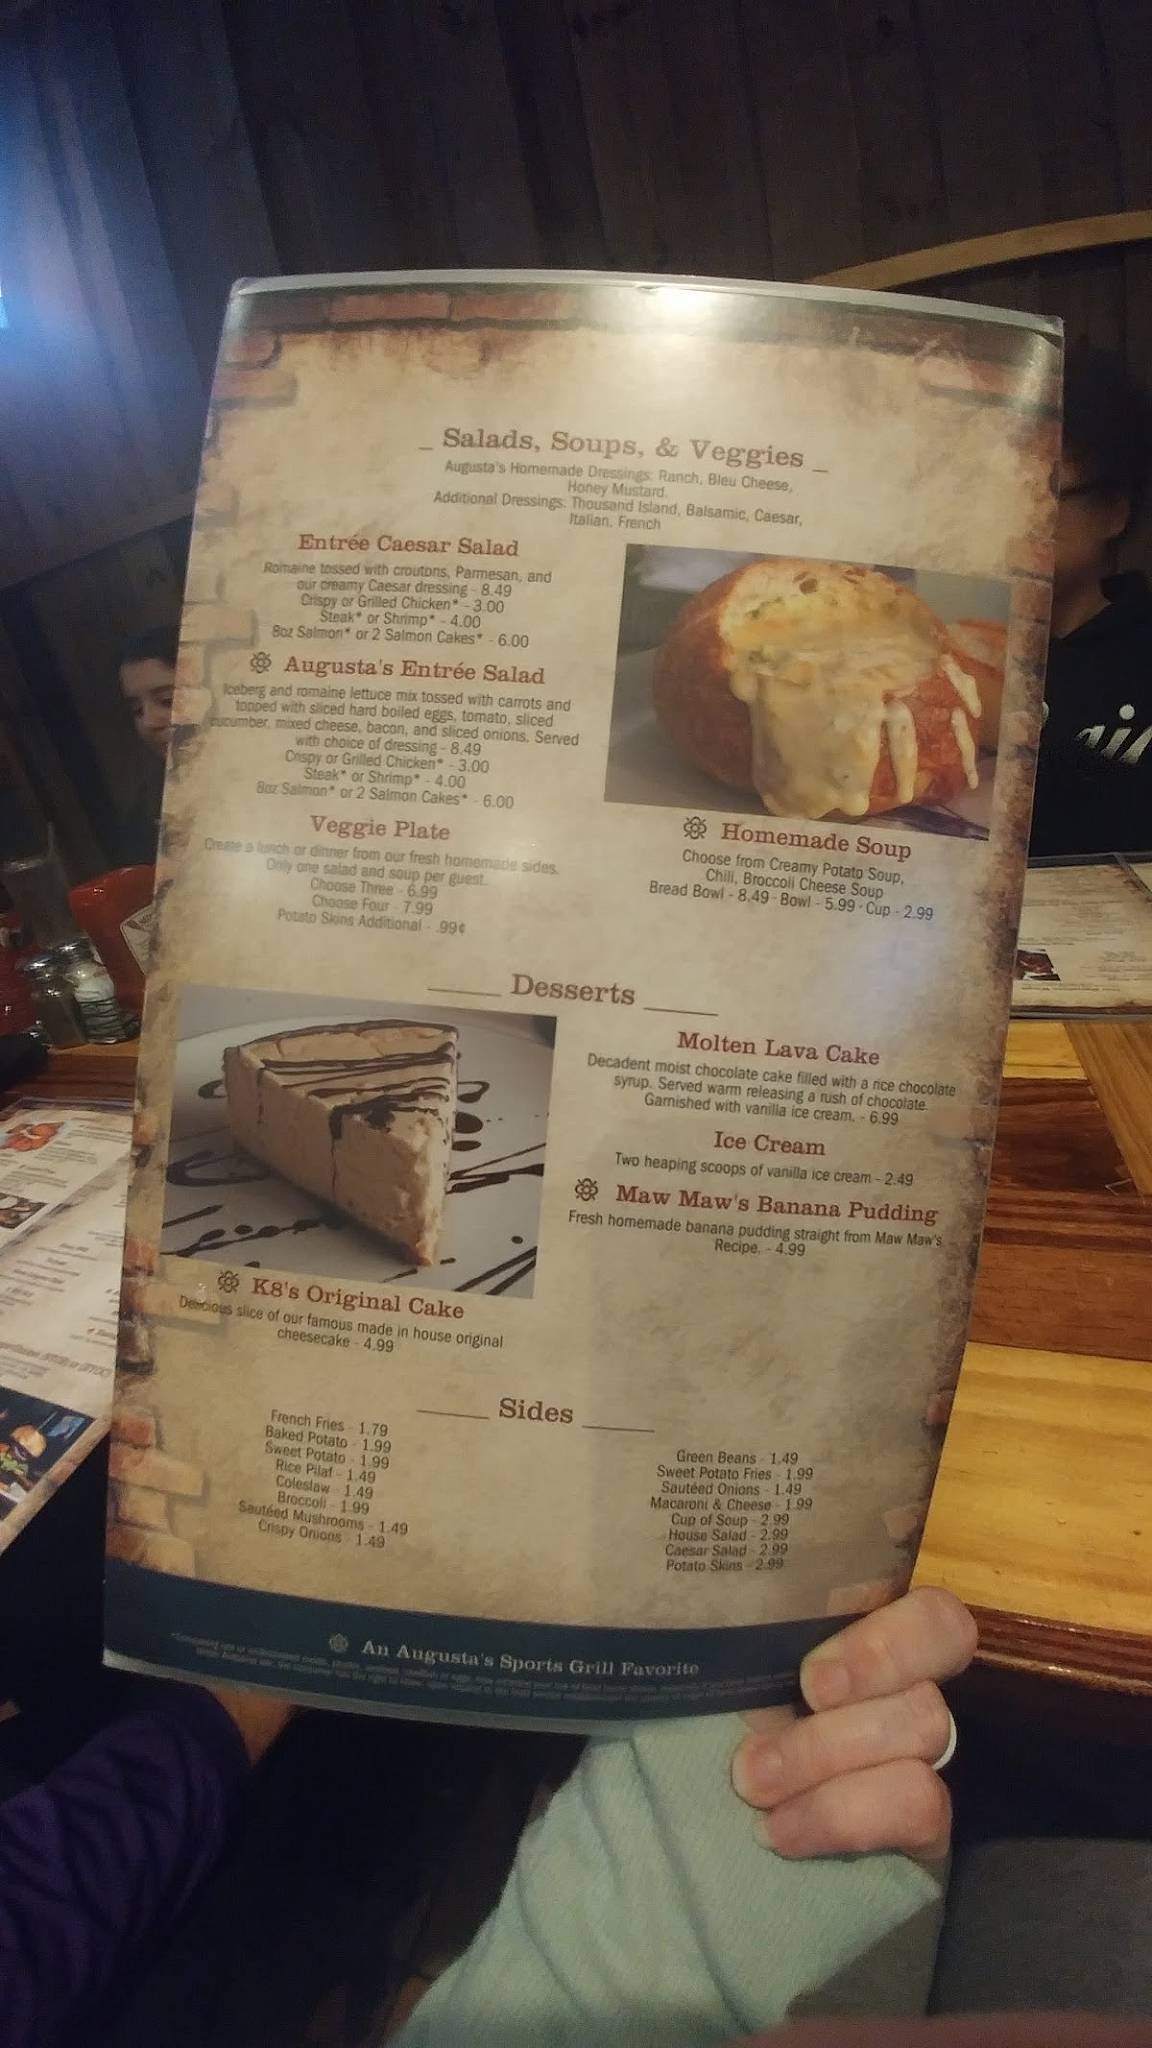 Salads, Soups, & Veggies
Augusta's Homemade Dressings: Ranch, Bleu Cheese,
Honey Mustard.
Additional Dressings: Thousand Island, Balsamic, Caesar,
Italian, French
Entrée Caesar Salad
Romaine tossed with croutons, Parmesan, and
our creamy Caesar dressing - 8.49
Crispy or Grilled Chicken* - 3.00
Steak* or Shrimp* - 4.00
8oz Salmon* or 2 Salmon Cakes* - 6.00
Augusta's Entrée Salad
Iceberg and romaine lettuce mix tossed with carrots and
topped with sliced hard boiled eggs, tomato, sliced
cucumber, mixed cheese, bacon, and sliced onions. Served
with choice of dressing - 8.49
Crispy or Grilled Chicken* - 3.00
Steak* or Shrimp* - 4.00
8oz Salmon* or 2 Salmon Cakes* - 6.00
Veggie Plate
Create a lunch or dinner from our fresh homemade sides.
Only one salad and soup per guest.
Choose Three - 6.99
Choose Four - 7.99
Potato Skins Additional - .99¢
Homemade Soup
Choose from Creamy Potato Soup,
Chili, Broccoli Cheese Soup
Bread Bowl - 8.49 · Bowl - 5.99 · Cup - 2.99
Desserts
Molten Lava Cake
Decadent moist chocolate cake filled with a rice chocolate
syrup. Served warm releasing a rush of chocolate.
Garnished with vanilla ice cream. - 6.99
Ice Cream
Two heaping scoops of vanilla ice cream - 2.49
Maw Maw's Banana Pudding
Fresh homemade banana pudding straight from Maw Maw's
Recipe. - 4.99
K8's Original Cake
Delicious slice of our famous made in house original
cheesecake - 4.99
Sides
French Fries - 1.79
Baked Potato - 1.99
Sweet Potato - 1.99
Rice Pilaf - 1.49
Coleslaw - 1.49
Broccoli - 1.99
Sautéed Mushrooms - 1.49
Crispy Onions - 1.49
Green Beans - 1.49
Sweet Potato Fries - 1.99
Sautéed Onions - 1.49
Macaroni & Cheese - 1.99
Cup of Soup - 2.99
House Salad - 2.99
Caesar Salad - 2.99
Potato Skins - 2.99
An Augusta's Sports Grill Favorite